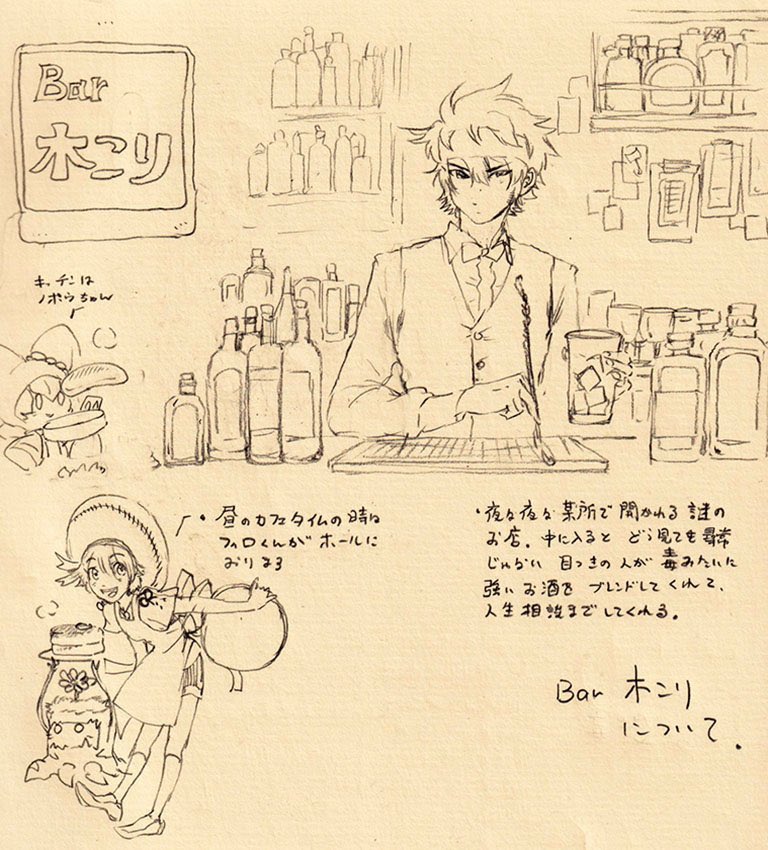 Bar
木こり
キッチンは
ノポウちゃん
・昼のカフェタイムの時は
フィロくんがホールに
おりまる
・夜な夜な某所で開かれる謎の
お店。中に入ると どう見ても尋常
じゃない 目つきの人が毒みたいに
強いお酒を ブレンドしてくれて、
人生相談までしてくれる。
Bar 木こり
について.